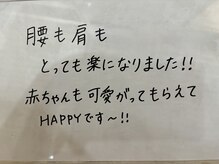 腰も肩も
とっても楽になりました!!
赤ちゃんも可愛がってもらえて
HAPPYです〜!!